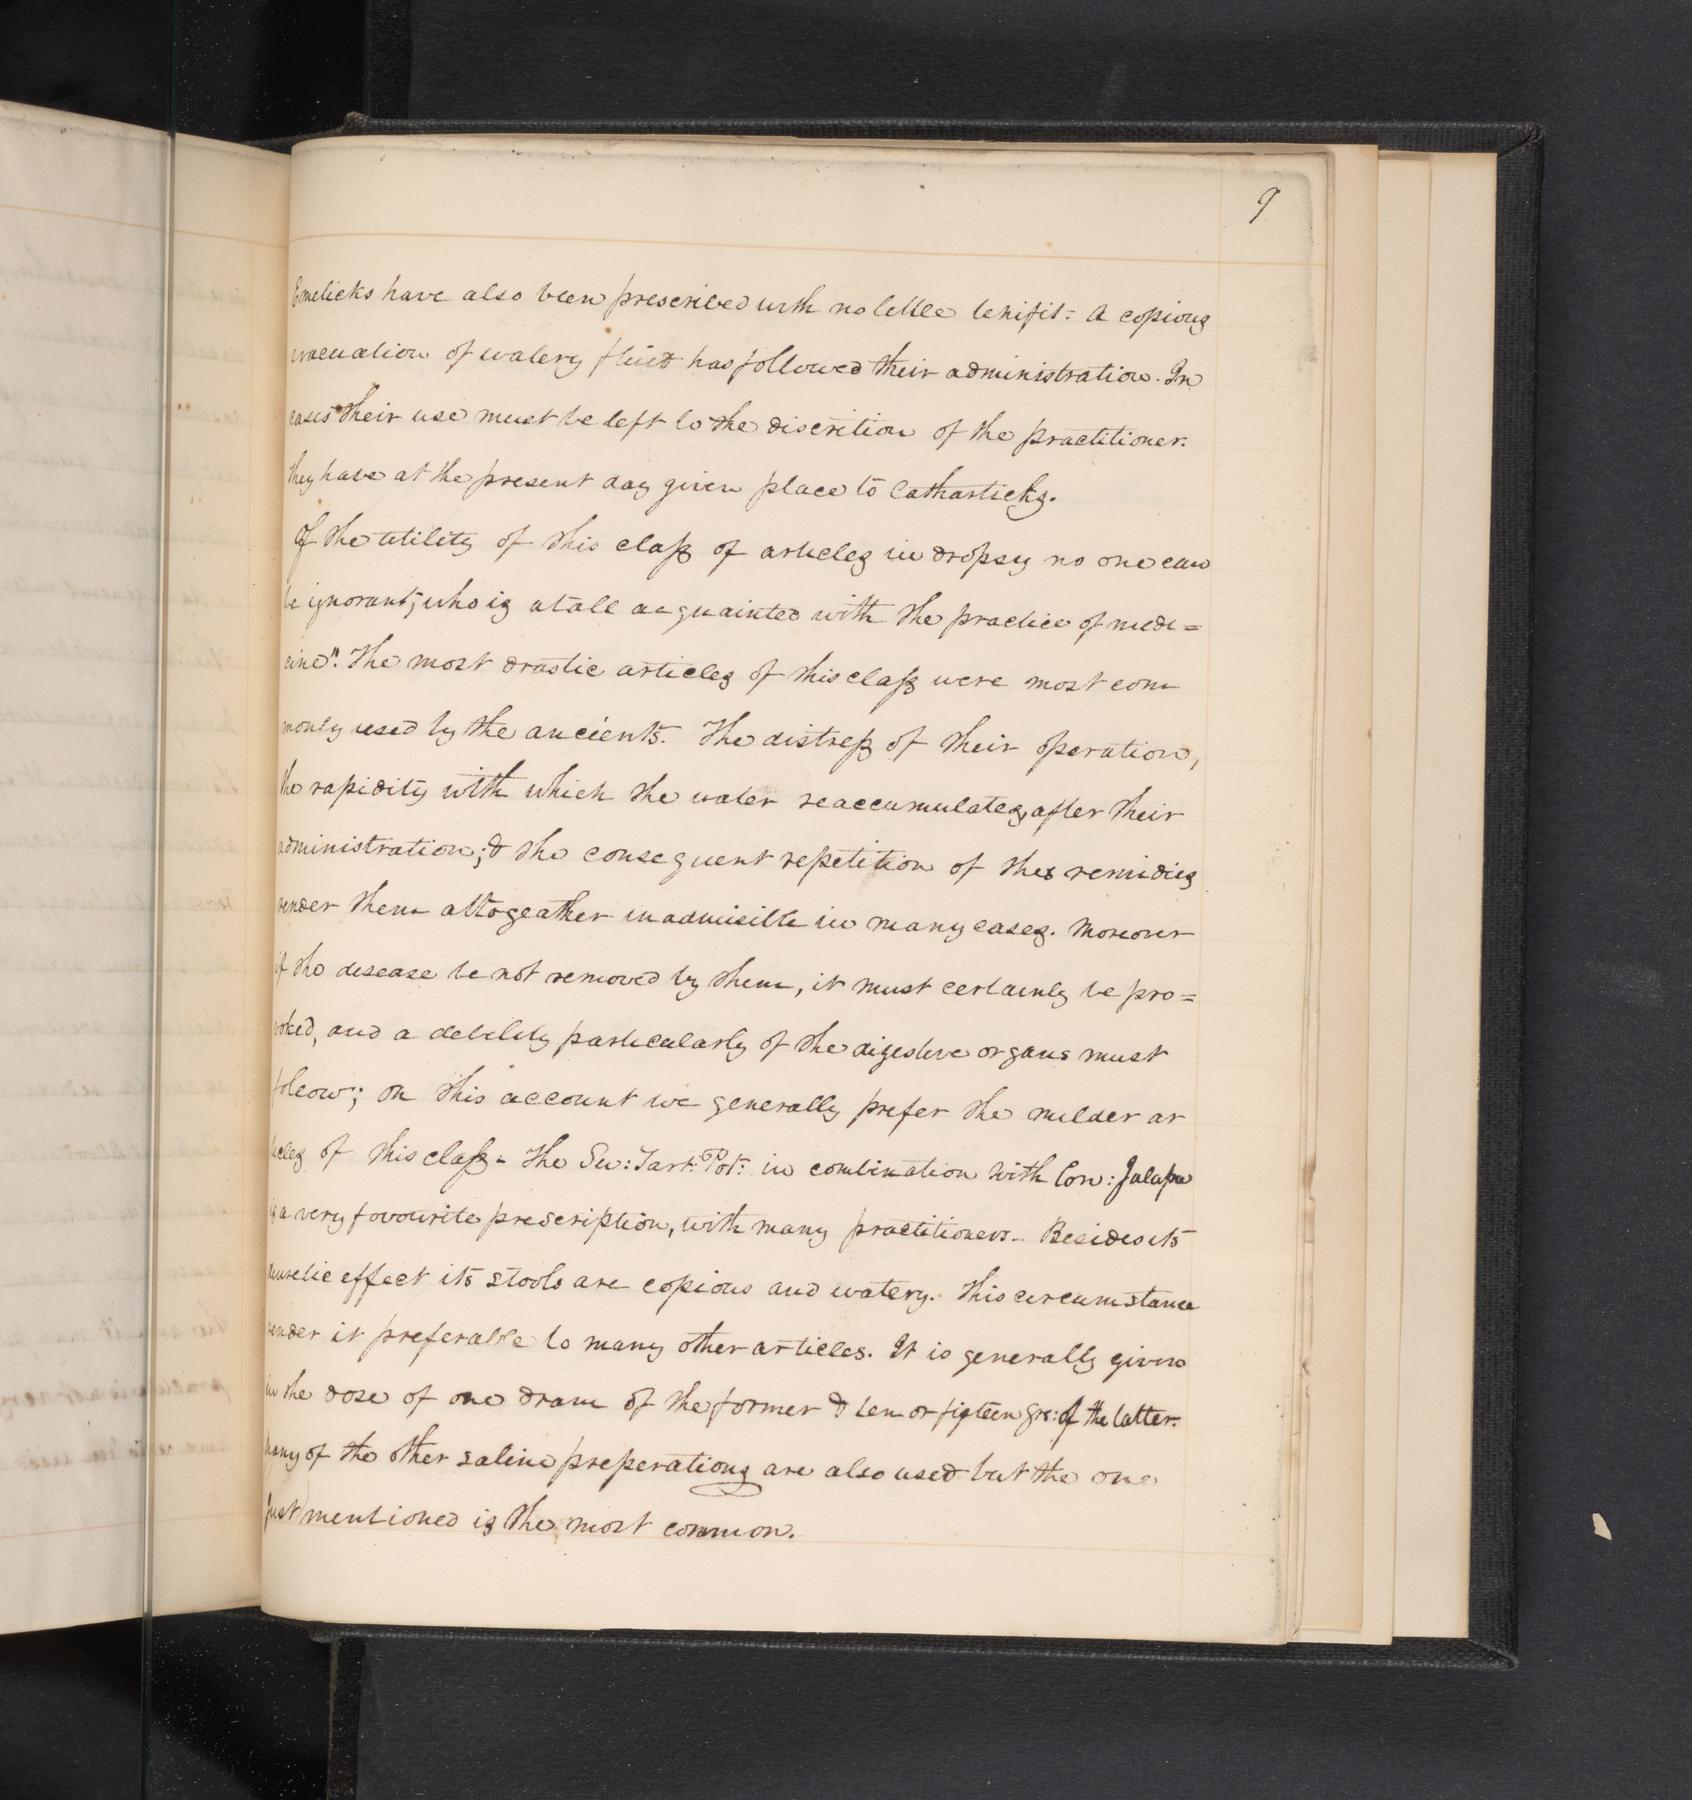 9
Emeticks have also been prescribed with no little benifit: A copious
evacuation of watery fluid has followed their administration. In
cases their use must be left to the discrition of the practitioner.
they have at the present day given place to Catharticks.
Of the utility of this class of articles in dropsy no one can
be ignorant, who is at all acquainted with the practice of medi=
cine". The most drastic articles of this class were most com
monly used by the ancients. The distress of their operation,
the rapidity with which the water reaccumulates, after their
administration; & the consequent repetition of thes remidies
render them altogeather inadmisible in many cases. Moreover
if the disease be not removed by them, it must certainly be pro=
voked, and a debility particularly of the digestive organs must
follow; on this account we generally prefer the milder ar
ticles of this class - The Su: Tart: Pot: in combination with Con: Jalapa
is a very fovourite prescription, with many practitioners - Besides its
diuretic effect its stools are copious and watery. This circumstance
render it preferable to many other articles. It is generally given
in the dose of one dram of the former & ten or fifteen grs: of the latter.
Many of the other saline preperations are also used but the one
just mentioned is the most common.